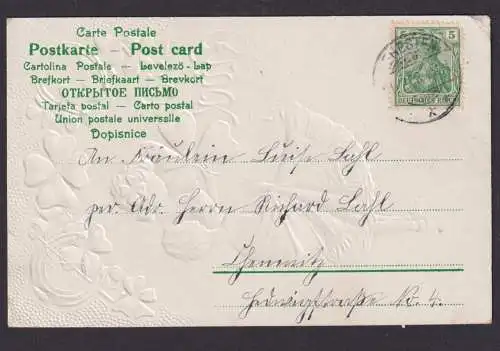 Carte Postale
Postkarte – Post card
Cartolina Postale – Levelező-Lap
Brefkort – Briefkaart – Brevkort
ОТКРЫТОЕ ПИСЬМО
Tarjeta postal – Carto postal
Union postale universelle
Dopisnice
5 5
DEUTSCHES REICH
An Fräulein Luise Lahl
per. Adr. Herrn Richard Lahl
Chemnitz
Hedwigstrasse No. 4.